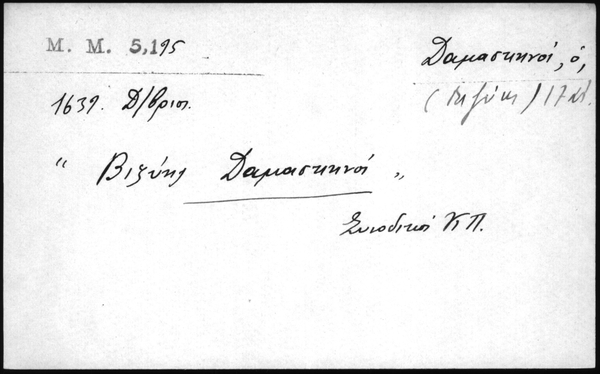 M. M. 5,195
Δαμασκηνός, ὁ,
(Βιζύης) 17 αἰ.
1639. Δ/βριος.
“ Βιζύης Δαμασκηνός „
Συνοδικός ΚΠ.